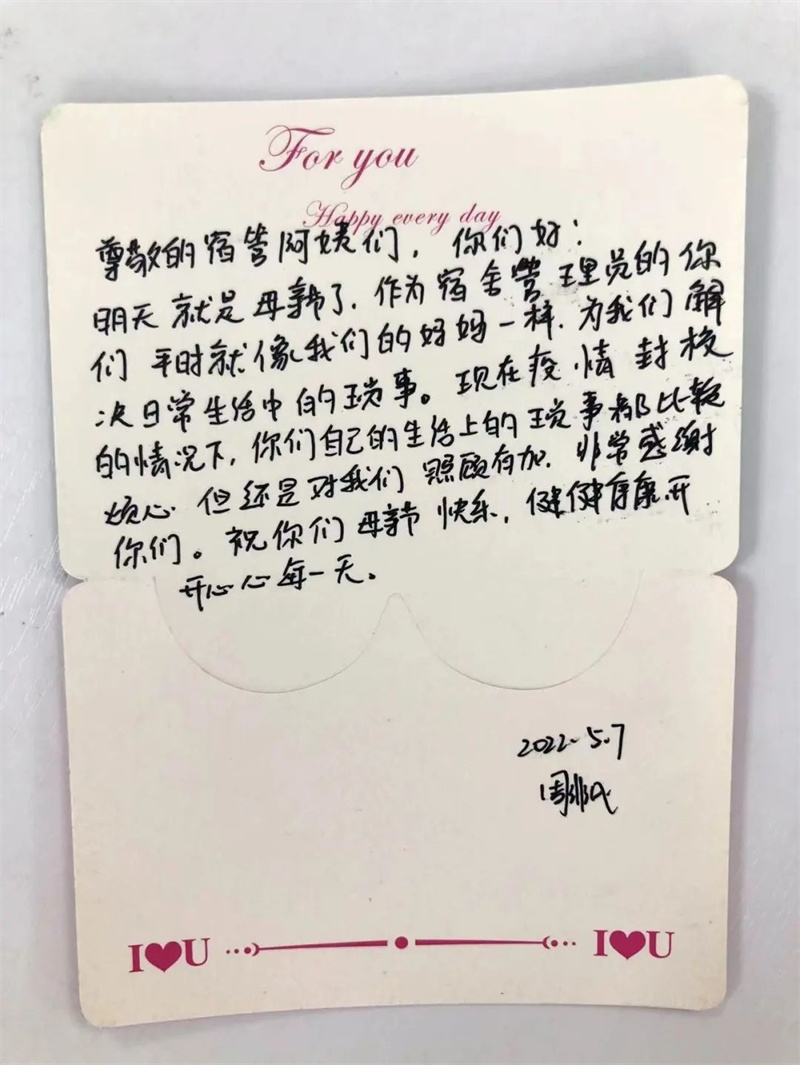 For you
Happy every day
尊敬的宿管阿姨们，你们好：
明天就是母亲节了，作为宿舍管理员的你
们平时就像我们的妈妈一样，为我们解
决日常生活中的琐事。现在疫情封校
的情况下，你们自己的生活上的琐事都比较
烦心 但还是对我们照顾有加，非常感谢
你们。祝你们母亲节快乐，健健康康开
开心心每一天。
2022.5.7
周
I❤U I❤U